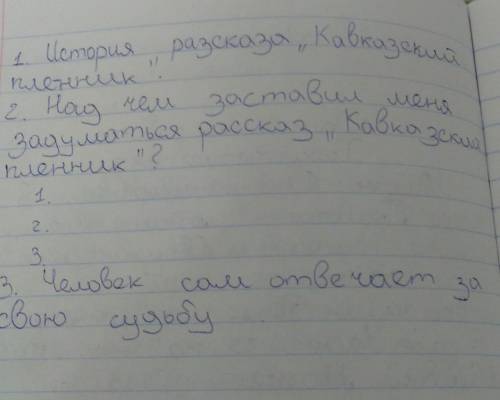 1. История разсказа „Кавказский
пленник".
2. Над чем заставил меня
задуматься рассказ „Кавказский
пленник"?
1.
2.
3.
3. Человек сам отвечает за
свою судьбу